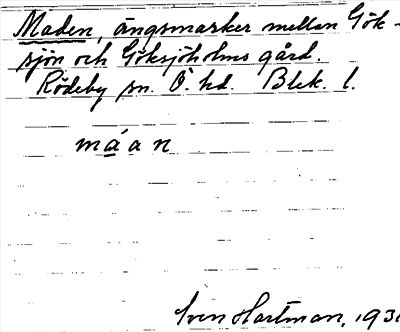 Maden, ängsmarker mellan Gök-
sjön och Göksjöholms gård.
Rödeby sn. Ö. hd. Blek. l.
máan
Sven Hartman, 193